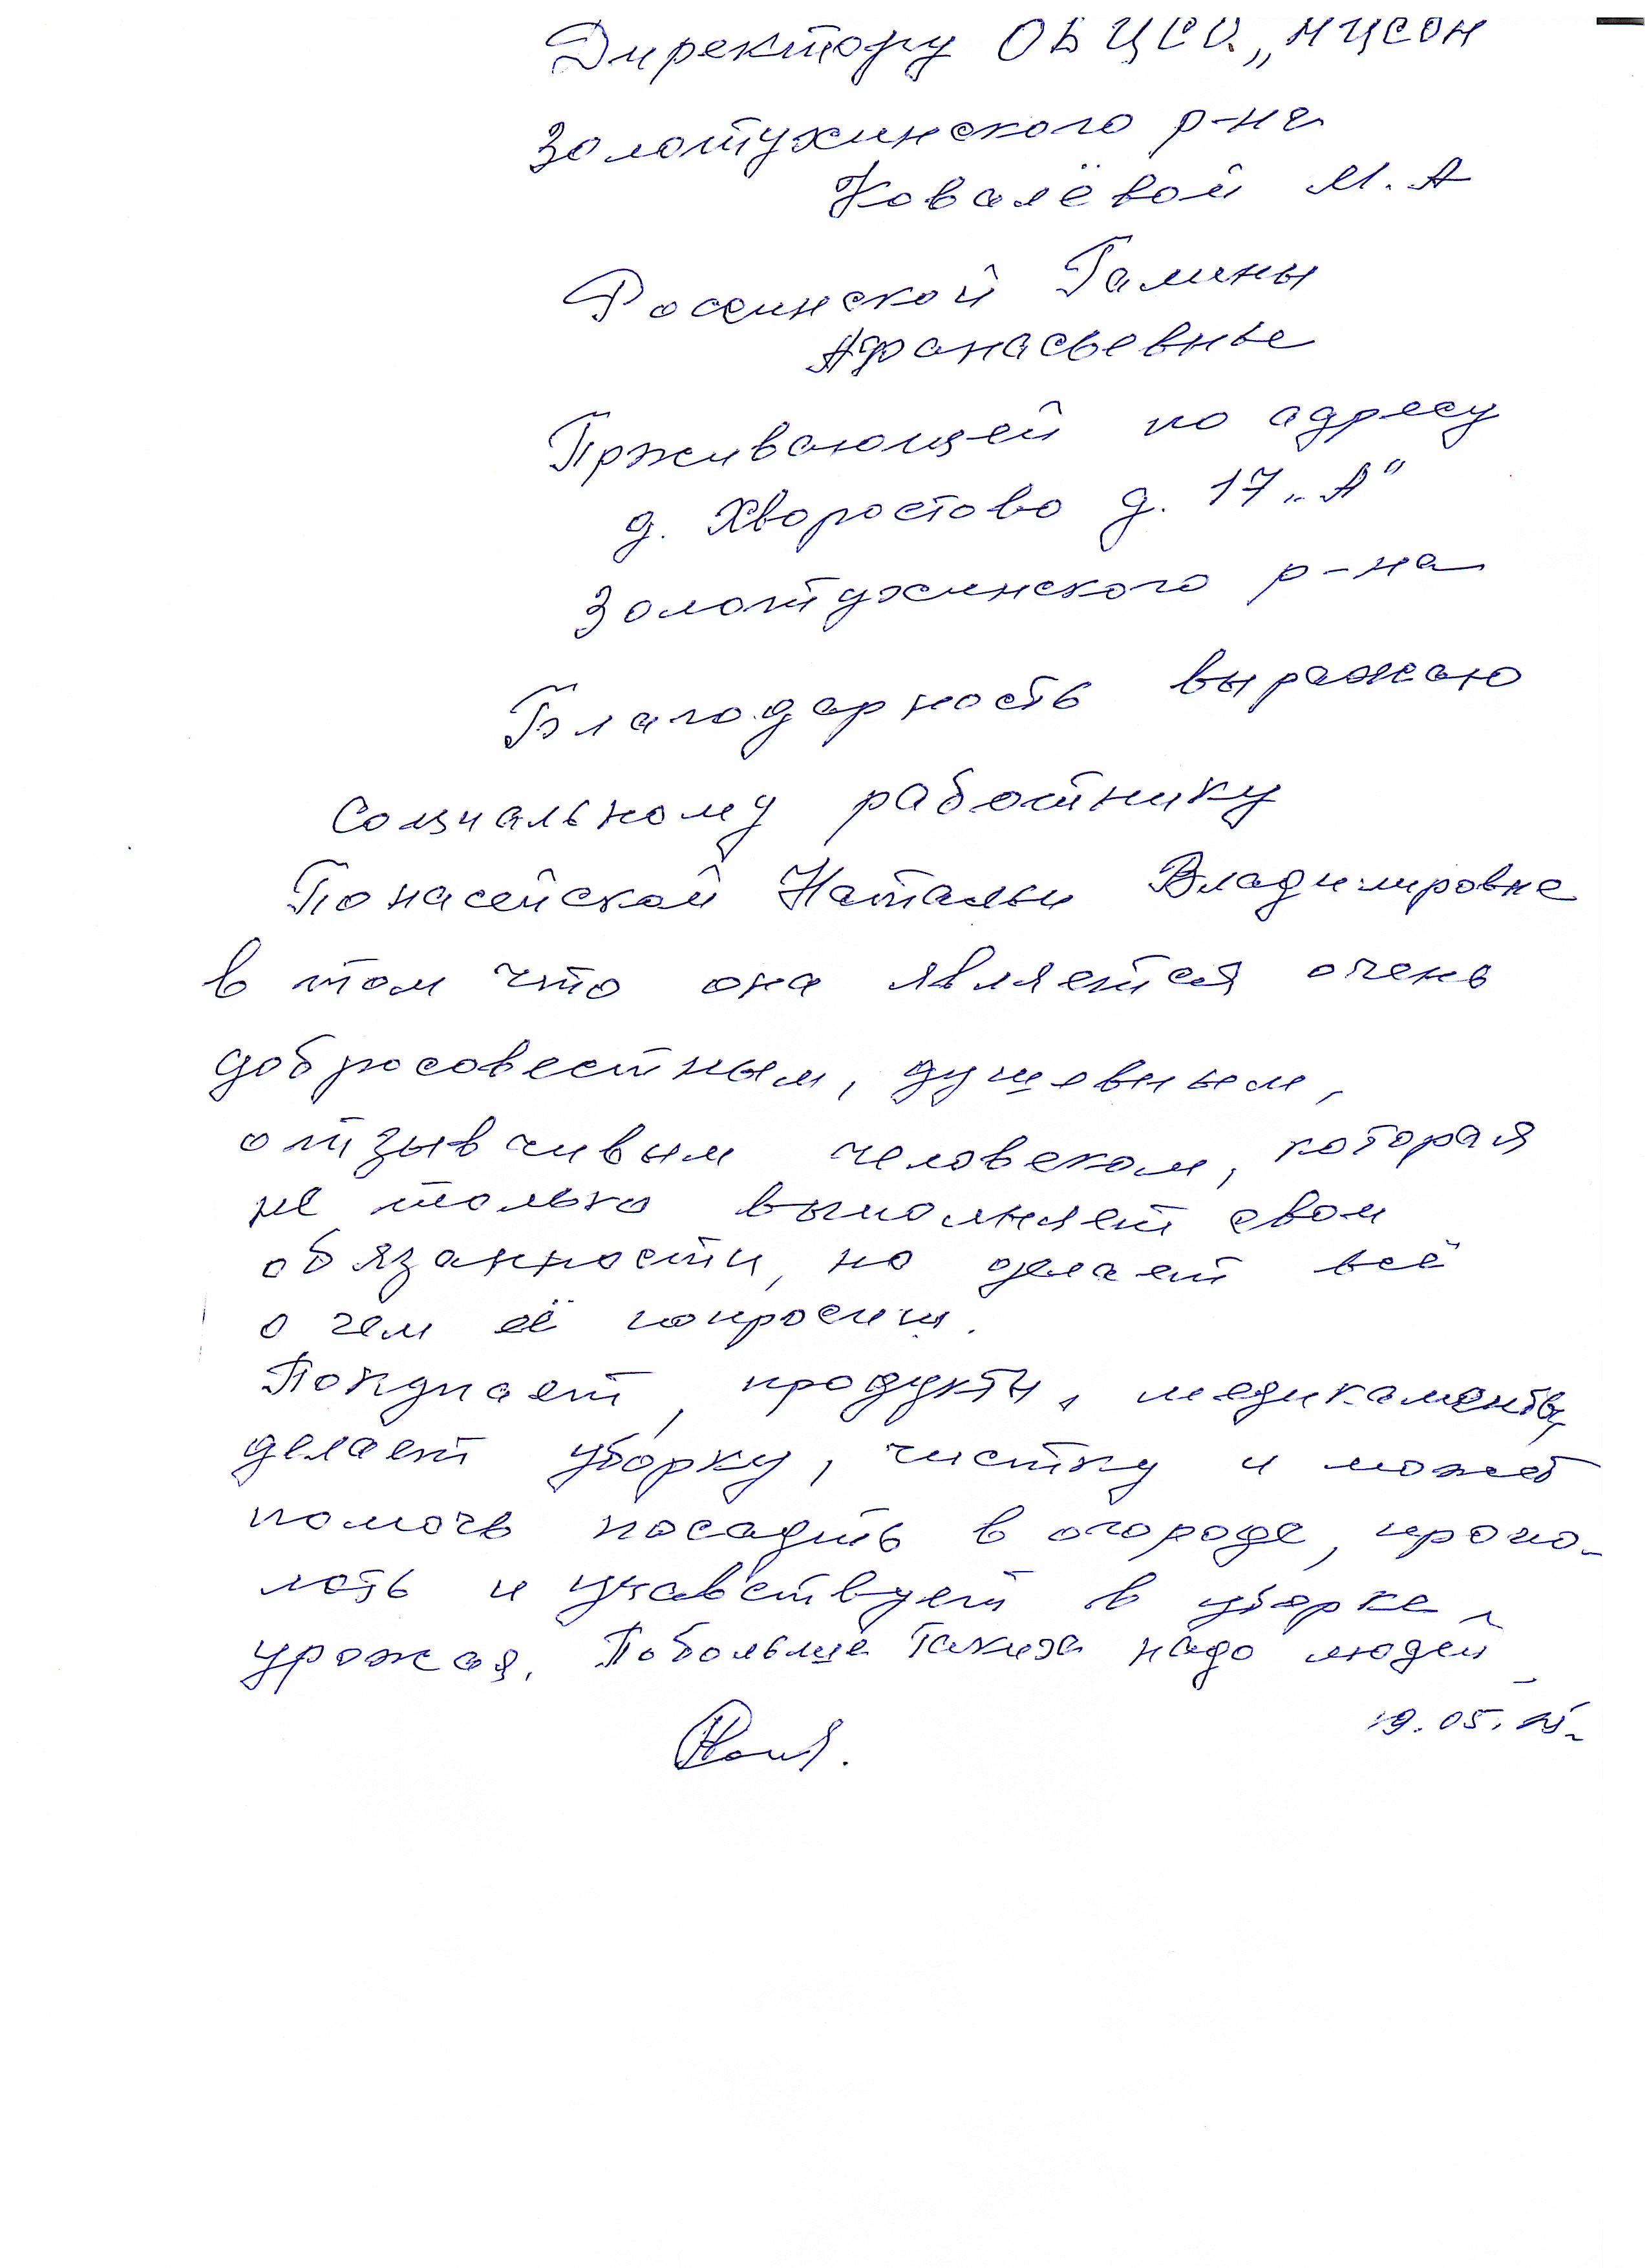 Директору ОБУСО „МЦСОН
Золотухинского р-на
Ковалёвой М. А
Россинской Галины
Афанасьевны
Прживающей по адресу
д. Хворостово д. 17 „А"
Золотухинского р-на
Благодарность выражаю
социальному работнику
Понасейской Натальи Владимировне
в том что она является очень
добросовестным, душевным,
отзывчивым человеком, которая
не только выполняет свои
обязанности, но делает всё
о чем её попросиш.
Покупает, продукты, медикаменты,
делает уборку, чистку и может
помочь посадить в огороде, пропо-
лоть и учавствует в уборке
урожая. Побольше таких надо людей
19.05.